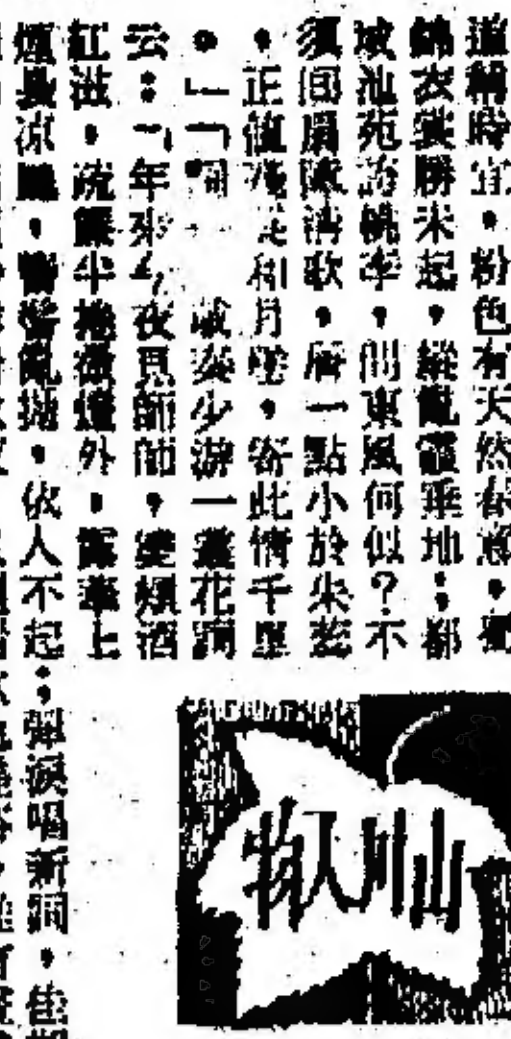 道稱時宜，粉色有天然春意，蜀
錦衣裳勝未起，縱亂霞垂地；都
城池苑誇桃李，問東風何似？不
須回扇障清歌，唇一點小於朱蕊
，正值殘英和月墜，寄此情千里
。」「同 戲秦少游一叢花調
云：「年來今夜見師師，雙頰酒
紅滋，疏簾半捲微燈外，露華上
煙裊涼颸，簪髻亂拋，依人不起；彈淚唱新詞，佳期
物人川山